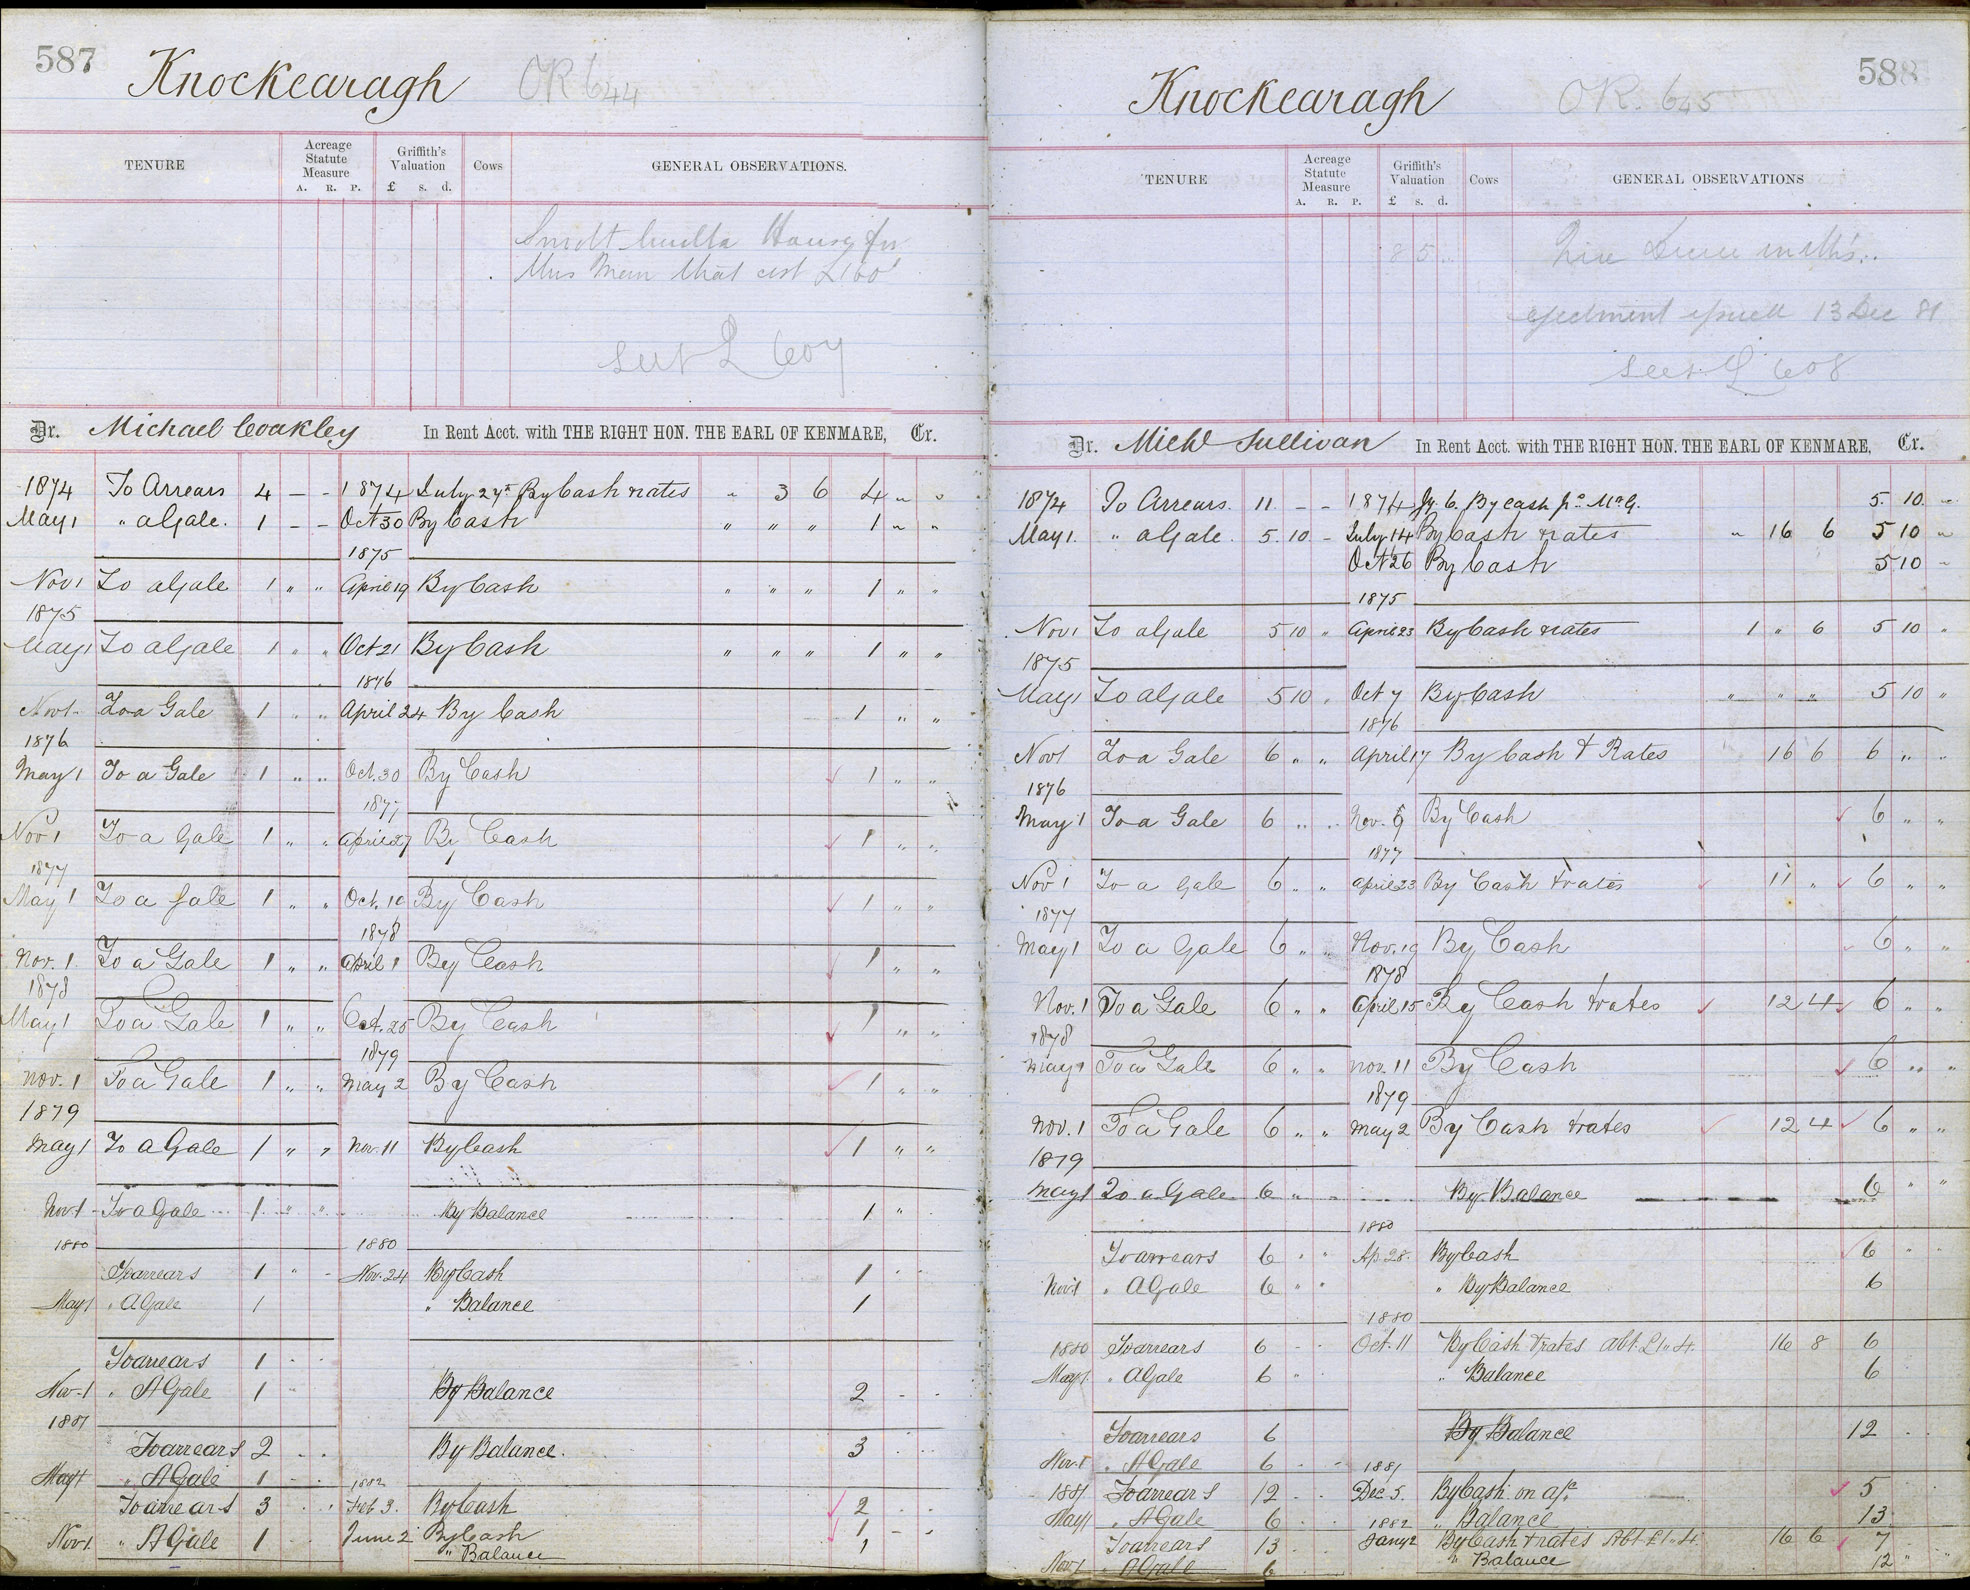 587
Knockearagh OR 644
TENURE Acreage Statute Measure A. R. P. Griffith's Valuation £ s. d. Cows GENERAL OBSERVATIONS.
House for
this man that cost £100
L 607
Dr. Michael Coakley In Rent Acct. with THE RIGHT HON. THE EARL OF KENMARE, Cr.
1874 To Arrears 4 – – 1874 July 27 By Cash & rates " 3 6 4 " "
May 1 " a Gale. 1 – – Oct 30 By Cash " " " 1 " "
1875
Nov 1 To a Gale 1 " " April 19 By Cash " " " 1 " "
1875
May 1 To a Gale 1 " " Oct 21 By Cash " " " 1 " "
1876
Nov 1 To a Gale 1 " " April 24 By Cash 1 " "
1876
May 1 To a Gale 1 " " Oct. 30 By Cash 1 " "
1877
Nov 1 To a Gale 1 " " April 27 By Cash 1 " "
1877
May 1 To a Gale 1 " " Oct. 10 By Cash 1 " "
1878
Nov. 1 To a Gale 1 " " April 1 By Cash 1 " "
1878
May 1 To a Gale 1 " " Oct. 25 By Cash 1 " "
1879
Nov. 1 To a Gale 1 " " May 2 By Cash 1 " "
1879
May 1 To a Gale 1 " " Nov. 11 By Cash 1 " "
Nov 1 To a Gale 1 " " By Balance 1 "
1880 1880
To arrears 1 " - Nov. 24 By Cash 1
May 1 " A Gale 1 " Balance 1
To arrears 1
Nov. 1 " A Gale 1 By Balance 2
1881
To arrears 2 By Balance. 3
May 1 " A Gale 1 1882
To arrears 3 Feb 3. By Cash 2
Nov 1 " A Gale 1 June 2 By Cash 1
" Balance 1
588
Knockearagh OR. 645
TENURE Acreage Statute Measure A. R. P. Griffith's Valuation £ s. d. Cows GENERAL OBSERVATIONS
8 5
ejectment 13 Dec 81
L 608
Dr. Michl Sullivan In Rent Acct. with THE RIGHT HON. THE EARL OF KENMARE, Cr.
1874 To Arrears. 11 – – 1874 Jy 6. By Cash 5. 10. "
May 1. " a Gale. 5. 10 – July 14 By Cash & rates " 16 6 5 10 "
Oct 26 By Cash 5 10 "
1875
Nov 1 To a Gale 5 10 " April 23 By Cash & rates 1 " 6 5 10 "
1875
May 1 To a Gale 5 10 " Oct 7 By Cash " " " 5 10 "
1876
Nov 1 To a Gale 6 " " April 17 By Cash & Rates 16 6 6 " "
1876
May 1 To a Gale 6 " " Nov. 9 By Cash 6 " "
1877
Nov 1 To a Gale 6 " " April 23 By Cash & rates 11 " 6 " "
1877
May 1 To a Gale 6 " " Nov. 19 By Cash 6 " "
1878
Nov. 1 To a Gale 6 " " April 15 By Cash & rates 12 4 6 " "
1878
May 1 To a Gale 6 " " Nov. 11 By Cash 6 " "
1879
Nov. 1 To a Gale 6 " " May 2 By Cash & rates 12 4 6 " "
1879
May 1 To a Gale 6 " " By Balance 6 " "
1880
To arrears 6 " " Ap. 28. By Cash 6 "
Nov 1 " A Gale 6 " " " By Balance 6
1880
1880 To arrears 6 Oct. 11 By Cash & rates Abt. £1..4. 16 8 6
May 1 " A Gale 6 " Balance 6
To arrears 6 By Balance 12
Nov. 1 " A Gale 6 1881
1881 To arrears 12 Dec 5. By Cash on a/c. 5
May 1 " A Gale 6 1882 " Balance 13
To arrears 13 Jany 2 By Cash & rates Abt £1..4. 16 6 7
Nov 1 " A Gale 6 " Balance 12 "